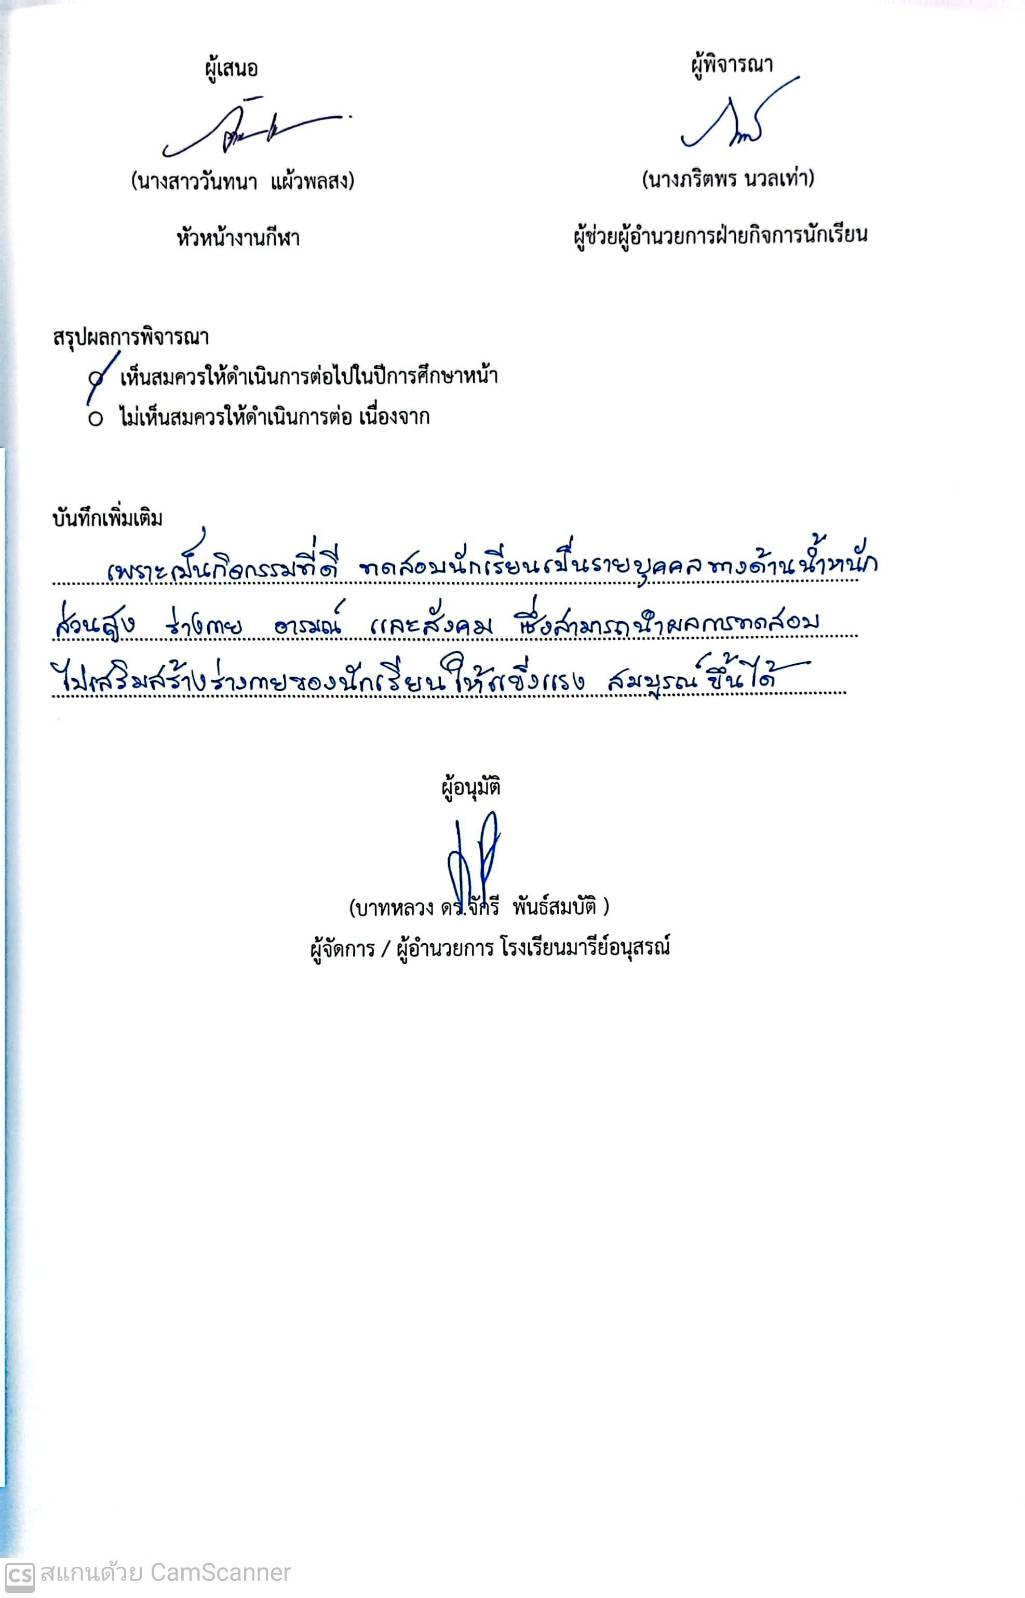 ผู้เสนอ
ผู้พิจารณา
(นางสาววันทนา แผ้วพลสง)
(นางภริตพร นวลเท่า)
หัวหน้างานกีฬา
ผู้ช่วยผู้อำนวยการฝ่ายกิจการนักเรียน
สรุปผลการพิจารณา
เห็นสมควรให้ดำเนินการต่อไปในปีการศึกษาหน้า
ไม่เห็นสมควรให้ดำเนินการต่อ เนื่องจาก
บันทึกเพิ่มเติม
เพราะเป็นกิจกรรมที่ดี ทดสอบนักเรียนเป็นรายบุคคลทางด้านน้ำหนัก
ส่วนสูง ร่างกาย อารมณ์ และสังคม ซึ่งสามารถนำผลการทดสอบ
ไปเสริมสร้างร่างกายของนักเรียนให้แข็งแรง สมบูรณ์ขึ้นได้
ผู้อนุมัติ
(บาทหลวง ดร.จักรี พันธ์สมบัติ )
ผู้จัดการ / ผู้อำนวยการ โรงเรียนมารีย์อนุสรณ์
CS สแกนด้วย CamScanner